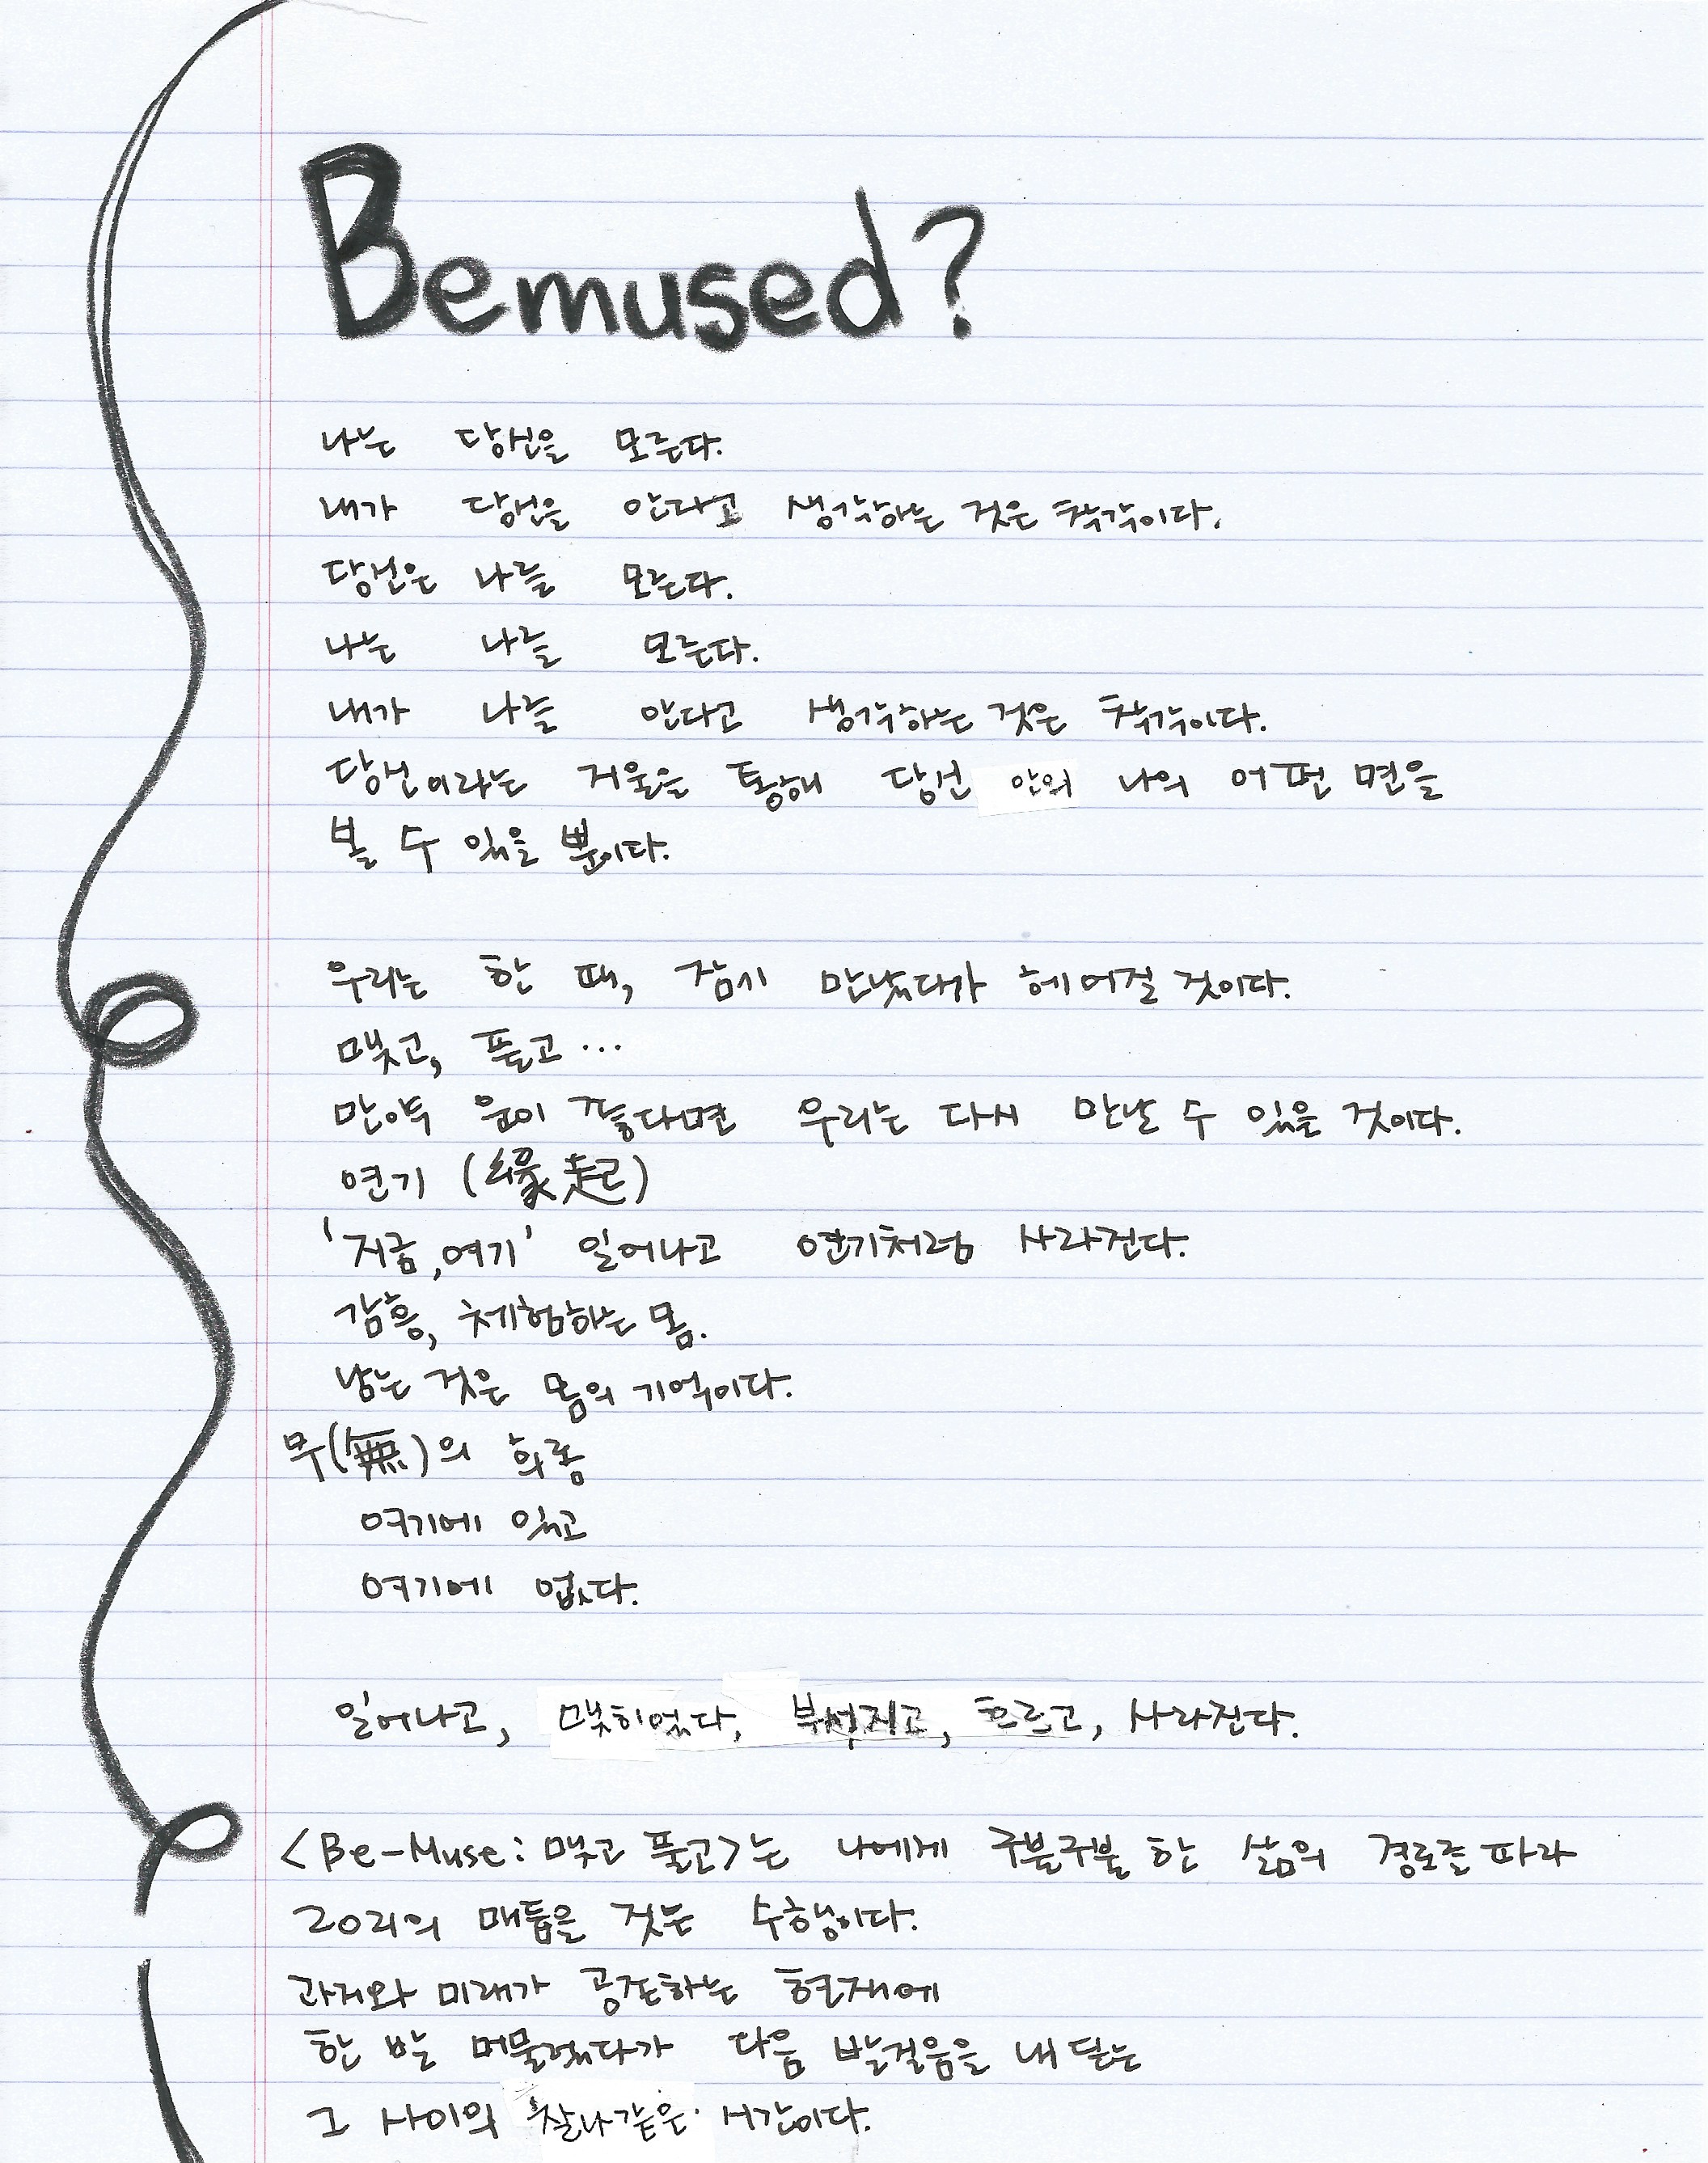 Bemused?
나는 당신을 모른다.
내가 당신을 안다고 생각하는 것은 착각이다.
당신은 나를 모른다.
나는 나를 모른다.
내가 나를 안다고 생각하는 것은 착각이다.
당신이라는 거울을 통해 당신 안의 나의 어떤 면을
볼 수 있을 뿐이다.
우리는 한 때, 잠시 만났다가 헤어질 것이다.
맺고, 풀고...
만약 운이 좋다면 우리는 다시 만날 수 있을 것이다.
연기 (緣起)
'지금, 여기' 일어나고 연기처럼 사라진다.
감응, 체험하는 몸.
남는 것은 몸의 기억이다.
무(無)의 희롱
여기에 있고
여기에 없다.
일어나고, 맺히었다, 부서지고, 흐르고, 사라진다.
<Be-Muse: 맺고 풀고>는 나에게 구불구불 한 삶의 경로를 따라
고리의 매듭을 짓는 수행이다.
과거와 미래가 공존하는 현재에
한 발 머물렀다가 다음 발걸음을 내 딛는
그 사이의 찰나같은 시간이다.